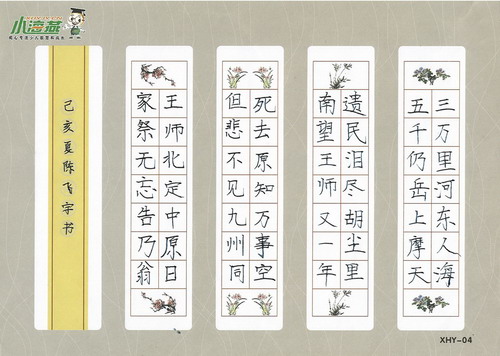 小海燕
三万里河东人海
五千仍岳上摩天
遗民泪尽胡尘里
南望王师又一年
死去原知万事空
但悲不见九州同
王师北定中原日
家祭无忘告乃翁
己亥夏陈飞字书
XHY-04